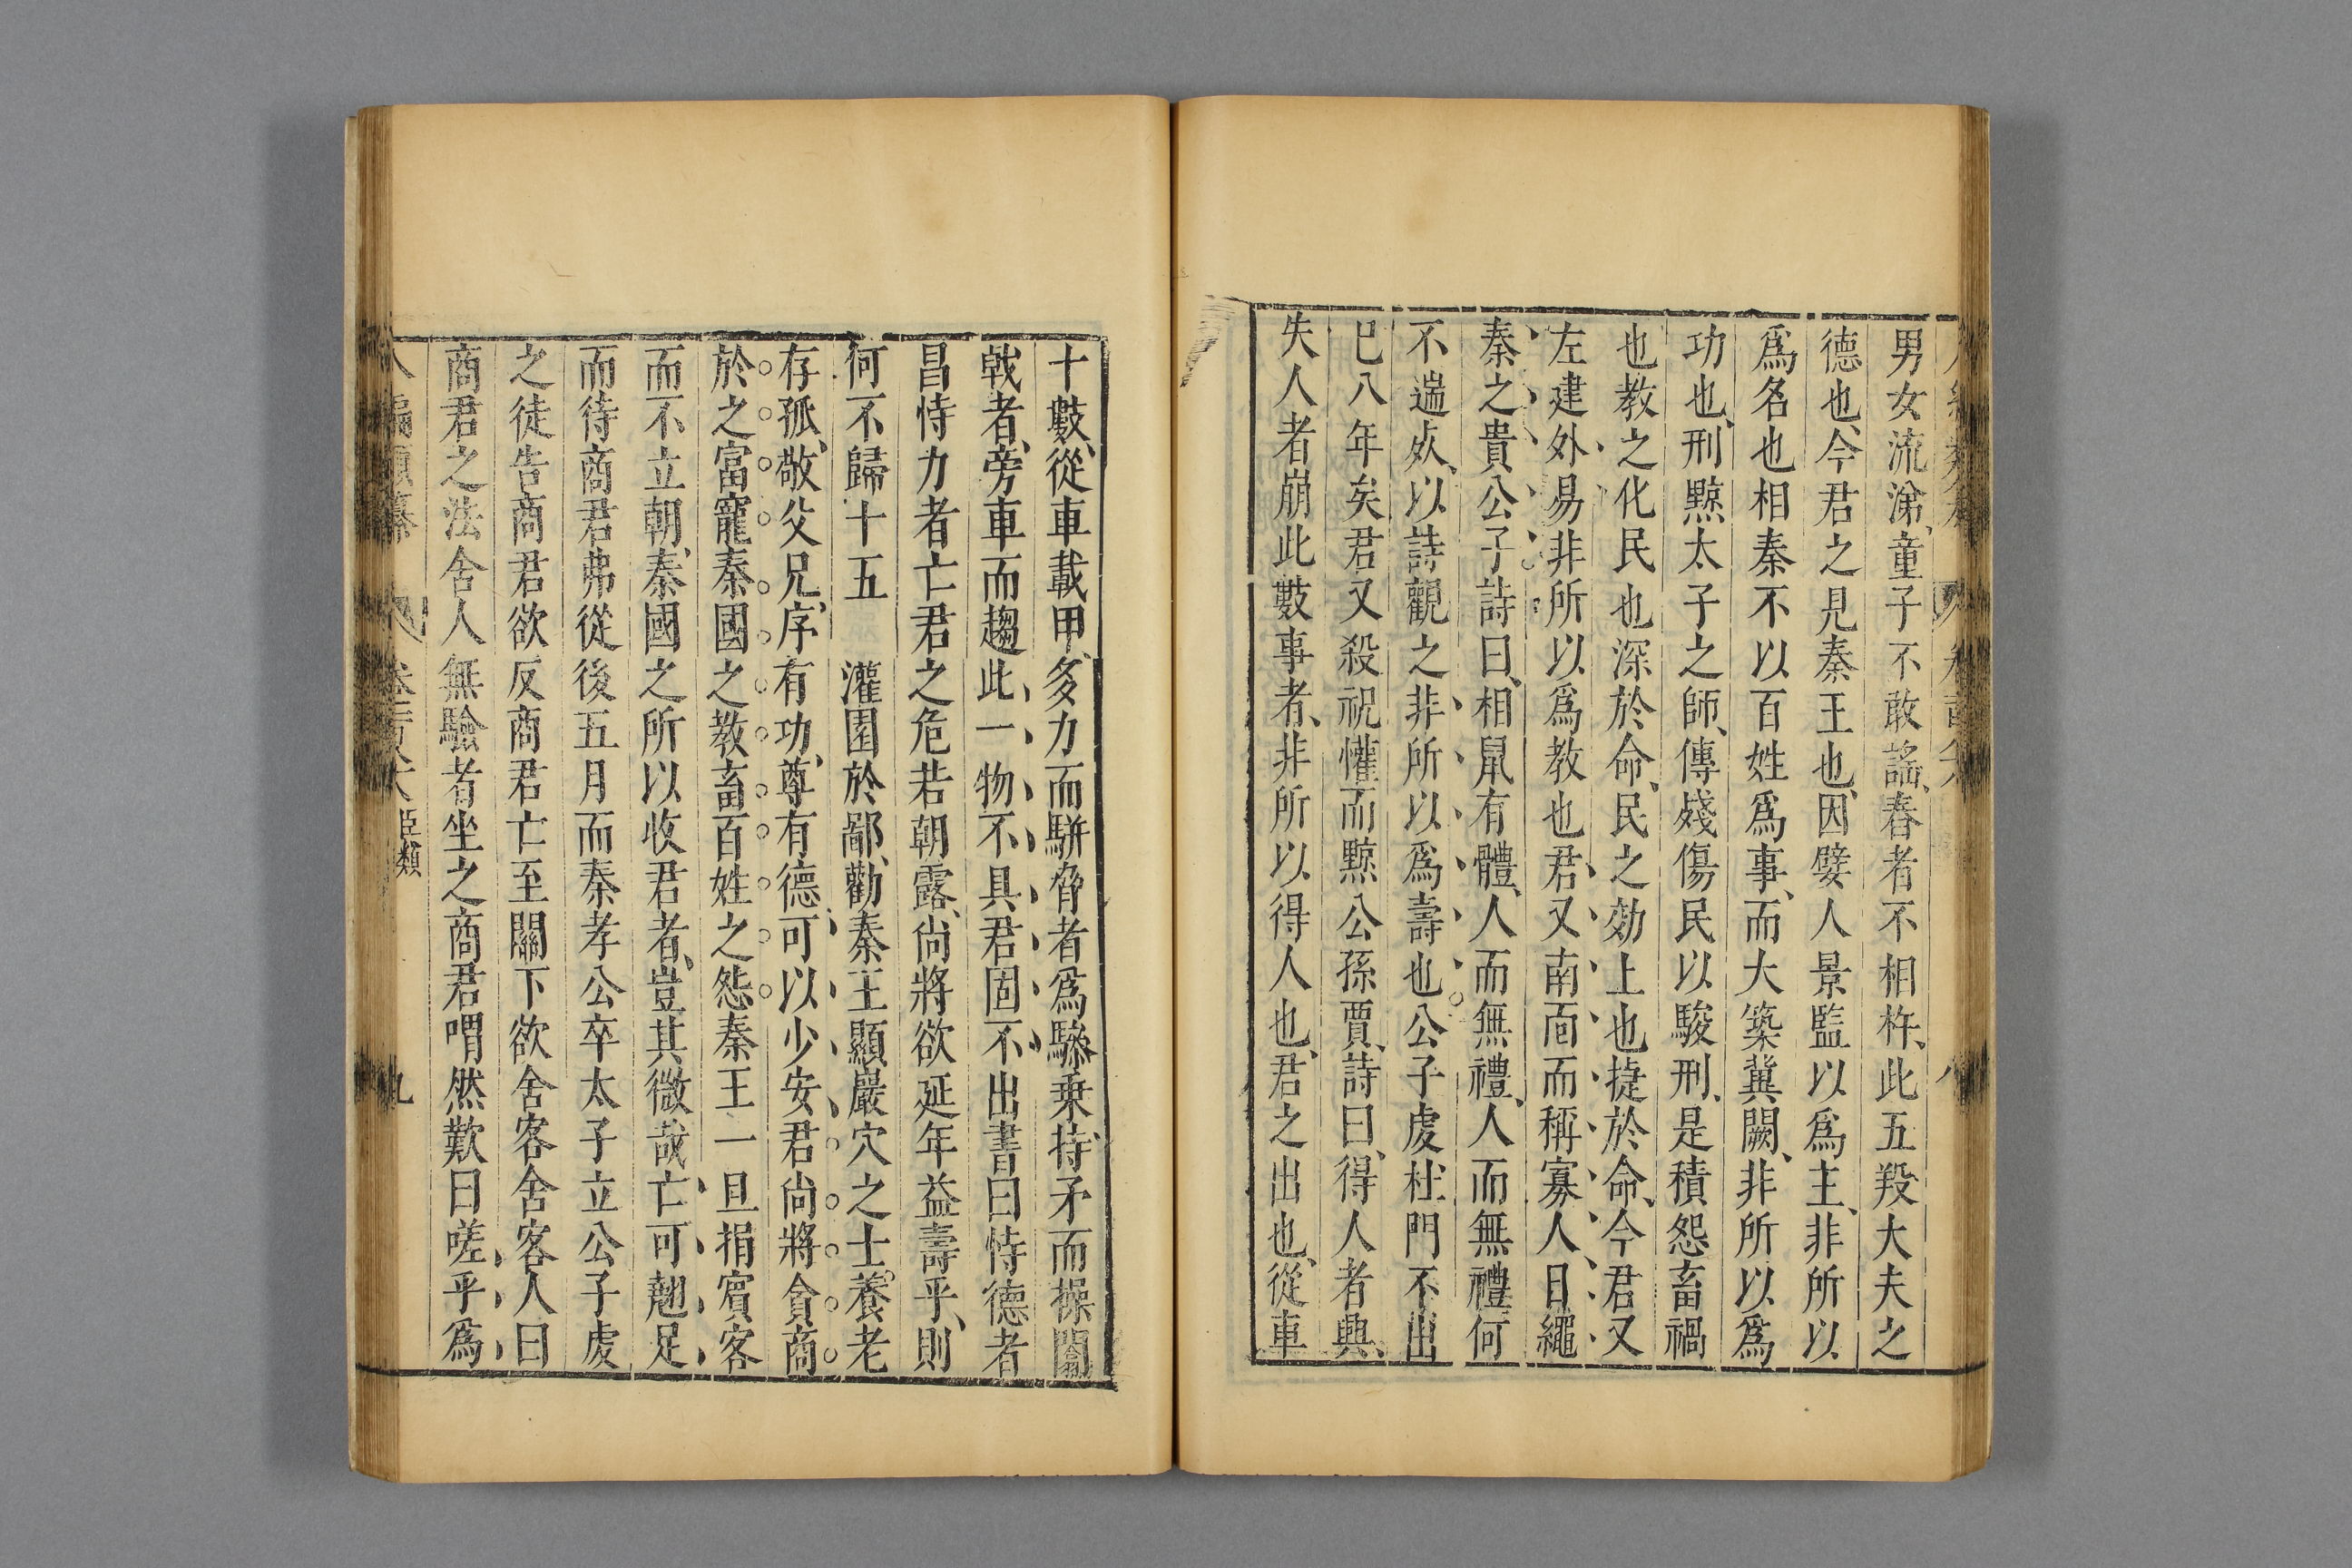 男女流涕、童子不敢謠、舂者不相杵、此五羖大夫之
德也、今君之見秦王也、因嬖人景監以爲主、非所以
爲名也相秦不以百姓爲事、而大築冀闕、非所以爲
功也、刑黥太子之師、傅殘傷民以駿刑、是積怨畜禍
也教之化民也深於命、民之効上也捷於命、今君又
左建外易非所以爲教也君又南面而稱寡人、日繩
秦之貴公子詩曰、相鼠有體、人而無禮、人而無禮何
不遄死、以詩觀之非所以爲壽也公子虔杜門不出
巳八年矣君又殺祝懽而黥公孫賈、詩曰、得人者興、
失人者崩此數事者、非所以得人也、君之出也、從車
十數、從車載甲、多力而駢脅者爲驂乘、持矛而操闟
戟者、旁車而趨此一物不具君固不出書曰恃德者
昌恃力者亡君之危若朝露、尚將欲延年益壽乎、則
何不歸十五 灌園於鄙、勸秦王顯巖穴之士、養老
存孤、敬父兄、序有功、尊有德可以少安君尚將貪商
於之富寵秦國之教畜百姓之怨秦王一旦捐賓客
而不立朝、秦國之所以收君者、豈其微哉亡可翹足
而待商君弗從後五月而秦孝公卒太子立公子虔
之徒告商君欲反商君亡至關下欲舍客舍客人曰
商君之法舍人無驗者坐之商君喟然歎曰嗟乎爲
八編類纂 臣類 九